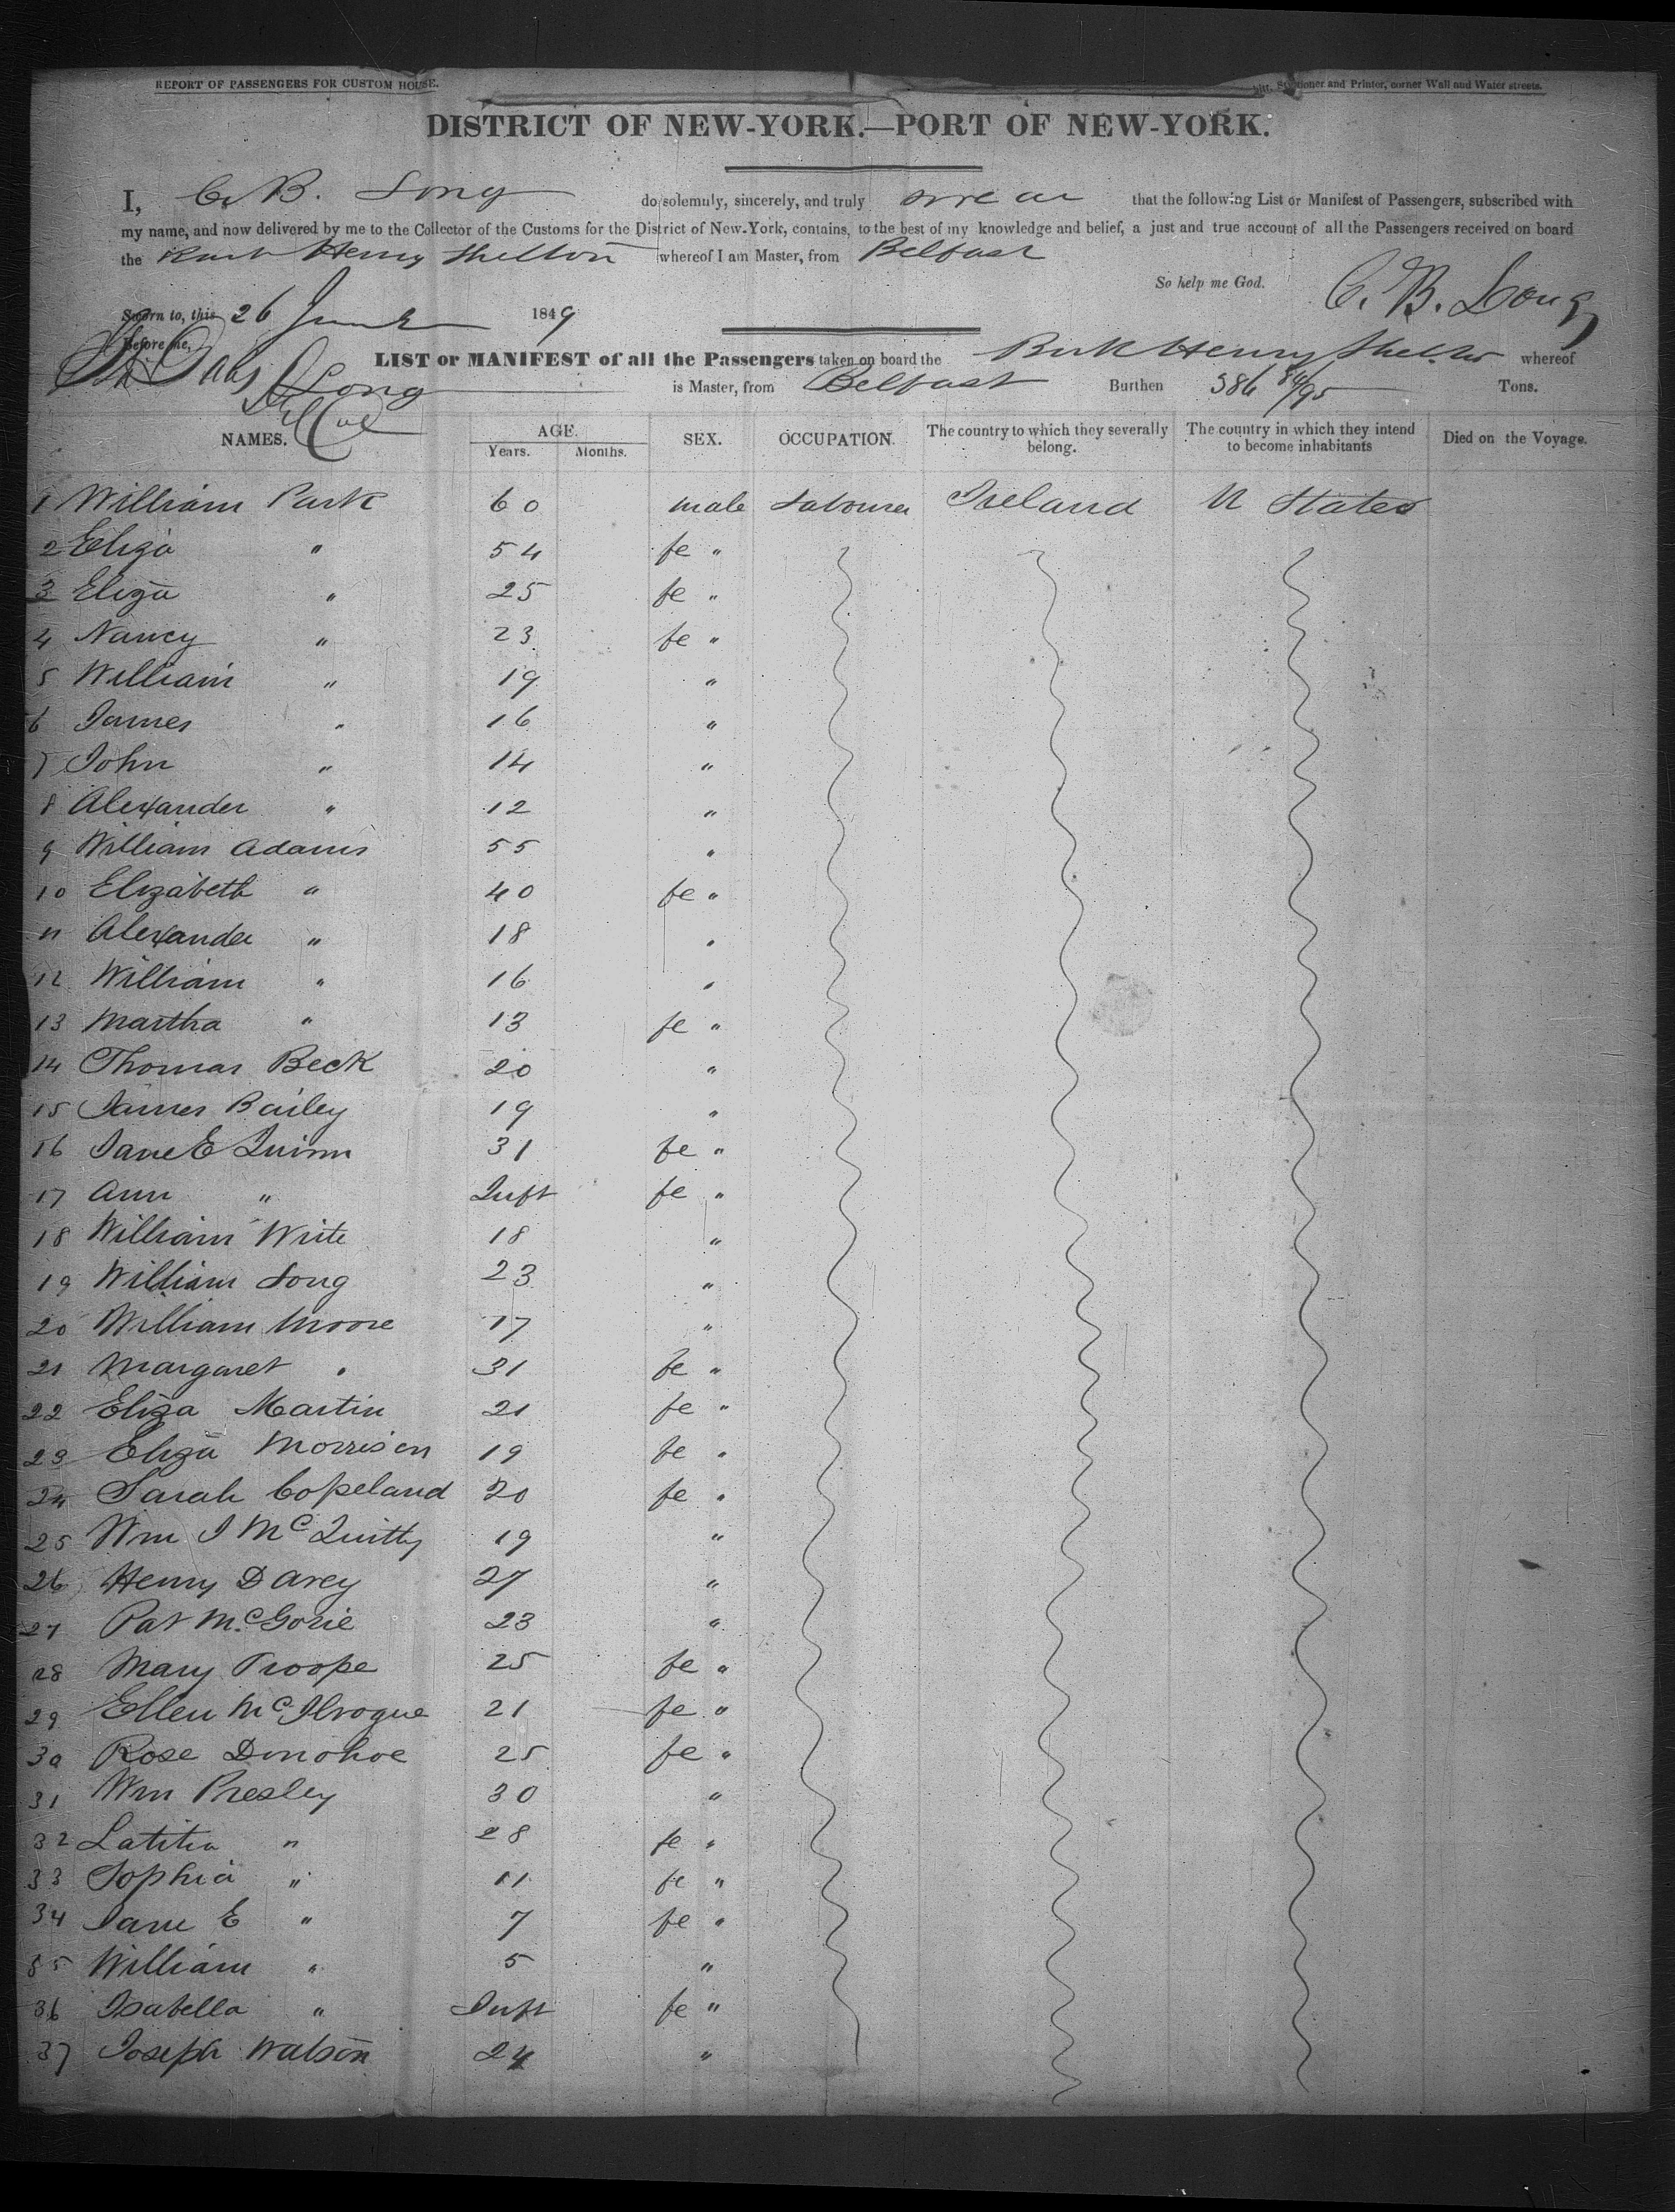 REPORT OF PASSENGERS FOR CUSTOM HOUSE.
Stationer and Printer, corner Wall and Water streets.
DISTRICT OF NEW-YORK.—PORT OF NEW-YORK.
I, C. B. Long do solemnly, sincerely, and truly swear that the following List or Manifest of Passengers, subscribed with
my name, and now delivered by me to the Collector of the Customs for the District of New-York, contains, to the best of my knowledge and belief, a just and true account of all the Passengers received on board
the Henry Shelton whereof I am Master, from Belfast
So help me God. C. B. Long
Sworn to, this 26 June 1849
Before me,
LIST or MANIFEST of all the Passengers taken on board the Bark Henry Shelton whereof
Long is Master, from Belfast Burthen 386 84/95 Tons.
NAMES. AGE. SEX. OCCUPATION. The country to which they severally belong. The country in which they intend to become inhabitants Died on the Voyage.
Years. Months.
1 William Park 60 male Labourer Ireland U States
2 Eliza " 54 fe "
3 Eliza " 25 fe "
4 Nancy " 23 fe "
5 William " 19 "
6 James " 16 "
7 John " 14 "
8 Alexander " 12 "
9 William Adams 55 "
10 Elizabeth " 40 fe "
11 Alexander " 18 "
12 William " 16 "
13 Martha " 13 fe "
14 Thomas Beck 20 "
15 James Bailey 19 "
16 Jane E Quinn 31 fe "
17 Ann " Inft fe "
18 William Write 18 "
19 William Long 23 "
20 William Moore 17 "
21 Margaret " 31 fe "
22 Eliza Martin 21 fe "
23 Eliza Morrison 19 fe "
24 Sarah Copeland 20 fe "
25 Wm J McQuitty 19 "
26 Henry Darey 27 "
27 Pat McGorie 23 "
28 Mary Troope 25 fe "
29 Ellen McIlvogue 21 fe "
30 Rose Donohoe 25 fe "
31 Wm Presley 30 "
32 Latitia " 28 fe "
33 Sophia " 11 fe "
34 Jane E " 7 fe "
35 William " 5 "
36 Isabella " Inft fe "
37 Joseph Watson 24 "